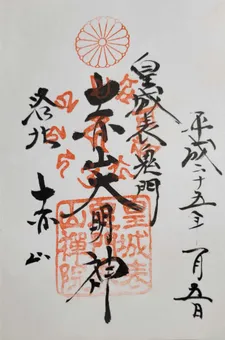 平成二十五年一月五日
皇城表鬼門
赤山大明神
洛北 赤山
皇城表
赤山禅院